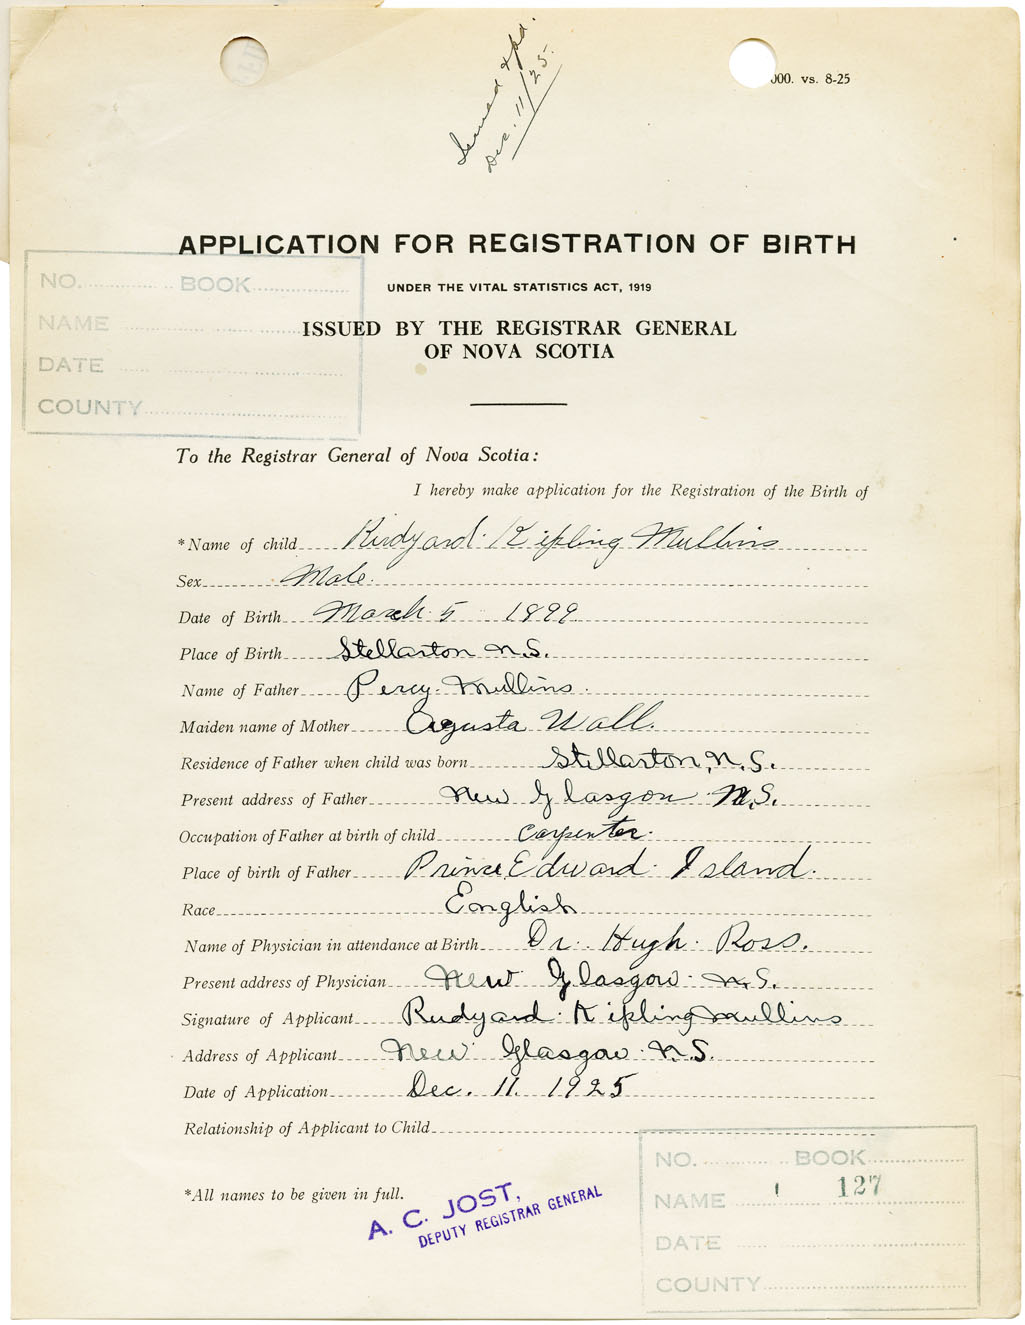 Issued & pd.
Dec. 11/25.
000. vs. 8-25
APPLICATION FOR REGISTRATION OF BIRTH
UNDER THE VITAL STATISTICS ACT, 1919
ISSUED BY THE REGISTRAR GENERAL
OF NOVA SCOTIA
NO. BOOK
NAME
DATE
COUNTY
To the Registrar General of Nova Scotia:
I hereby make application for the Registration of the Birth of
*Name of child Rudyard Kipling Mullins
Sex Male.
Date of Birth March 5 1899
Place of Birth Stellarton N.S.
Name of Father Percy Mullins.
Maiden name of Mother Agusta Wall.
Residence of Father when child was born Stellarton, N.S.
Present address of Father New Glasgow N.S.
Occupation of Father at birth of child Carpenter.
Place of birth of Father Prince Edward Island.
Race English
Name of Physician in attendance at Birth Dr. Hugh Ross.
Present address of Physician New Glasgow N.S.
Signature of Applicant Rudyard Kipling Mullins
Address of Applicant New Glasgow N.S.
Date of Application Dec. 11. 1925
Relationship of Applicant to Child
*All names to be given in full.
A. C. JOST,
DEPUTY REGISTRAR GENERAL
NO. BOOK
NAME 127
DATE
COUNTY